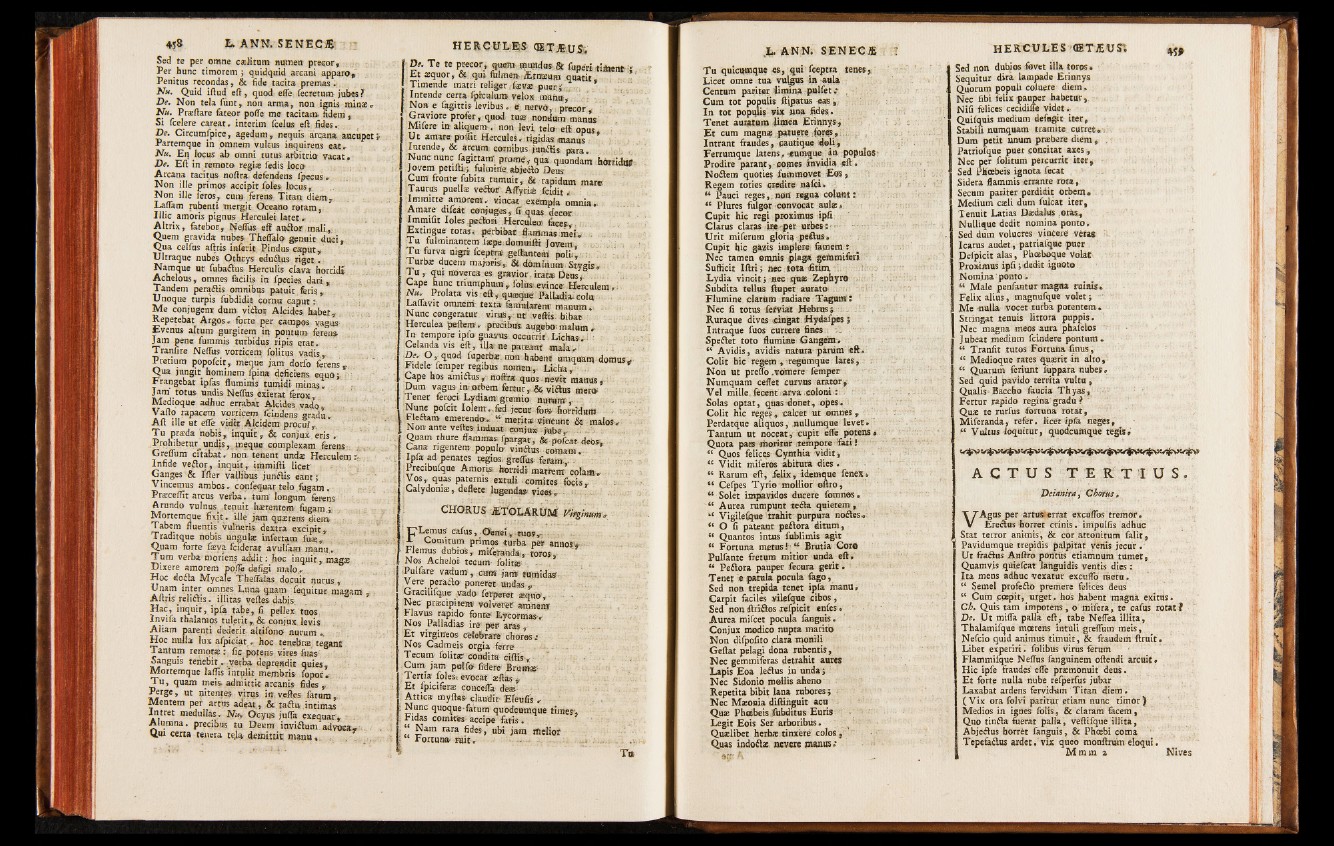 458 L. ANN. SENECÆ
Sed te per omne cælitum numen precor,
Per hunc timorem; quidquid arcani apparo,
Penitus recondas, & fide tacita premas.
Nu. Quid istud est, quod esse secretum jubes?
De. Non tela sunt, non arma, non ignis minax.
Nu. Præstare fateor posse me tacitam fidem,
Si scelere careat. interim scelus est fides.
De. Circumspice, agedum, nequis arcana aucupet;
Partemque in omnem vultus inquirens eat.
Nu. En locus ab omni tutus arbitrio vacat.
De. Est in remoto regiæ sedis loco
Arcana tacitus nostra defendens specus.
Non ille primos accipit soles locus,
Non ille seros, cum ferens Titan diem,
Lassam rubenti mergit Oceano rotam,
Illic amoris pignus Herculei latet.
Altrix, fatebor, Nessus est auctor mali,
Quem gravida nubes Thessalo genuit duci,
Qua celsus astris inserit Pindus caput,
Ultraque nubes Othrys eductus riget.
Namque ut subactus Herculis clava horridi
Achelous, omnes facilis in species dari,
Tandem peractis omnibus patuit feris,
Unoque turpis subdidit cornu caput:
Me conjugem dum victor Alcides habet,
Repetebat Argos. forte per campos vagus
Evenus altum gurgitem in pontum ferens
Jam pene summis turbidus ripis erat.
Transire Nessus vorticem solitus vadis,
Pretium poposcit, meque jam dorso ferens,
Qua jungit hominem spina deficiens equo;
Frangebat ipsas fluminis tumidi minas.
Jam totus undis Nessus exierat ferox,
Medioque adhuc errabat Alcides vado,
Vasto rapacem vorticem scindens gradu.
Ast ille ut esse vidit Alcidem procul,
Tu præda nobis, inquit, & conjux eris.
Prohibetur undis, meque complexam ferens
Gressum citabat. non tenent undæ Herculem:
Infide vector, inquit, immisti licet
Ganges & Ister vallibus junctis eant;
Vincemus ambos. consequar telo fugam.
Præcessit arcus verba. tum longum ferens
Arundo vulnus tenuit hærentem fugam;
Mortemque fixit. ille jam quærens diem
Tabem fluentis vulneris dextra excipit,
Traditque nobis ungulæ insertam suæ,
Quam forte sæva sciderat avulsam manu.
Tum verba moriens addit: hoc inquit, magæ
Dixere amorem posse defigi malo.
Hoc docta Mycale Thessalas docuit nurus,
Unam inter omnes Luna quam sequitur magam,
Astris relictis. illitas vestes dabis
Hac, inquit, ipsa tabe, si pellex tuos
Invisa thalamos tulerit, & conjux levis
Aliam parenti dederit altisono nurum.
Hoc nulla lux aspiciat. hoc tenebræ tegant
Tantum remotæ: sic potens vires suas
Sanguis tenebit. verba deprendit quies,
Mortemque lassis intulit membris sopor.
Tu, quam meis admittit arcanis fides,
Perge, ut nitentes virus in vestes datum,
Mentem per artus adeat, & tactu intimas
Intret medullas. Nu. Ocyus jussa exequar,
Alumna. precibus tu Deum invictum advoca,
Qui certa tenera tela demittit manu.
HERCULES ŒTÆUS.
De. Te te precor, quem mundus & superi timent;
Et æquor, & qui fulmen Ætnæum quatit,
Timende matri teliger sævæ puer;
Intende certa spiculum velox manu,
Non e sagittis levibus. e nervo, precor,
Graviore profer, quod tuæ nondum manus
Misere in aliquem. non levi telo est opus,
Ut amare possit Hercules. rigidas manus
Intende, & arcum cornibus junctis para.
Nunc nunc sagittam prome, qua quondam horridus
Jovem petisti; fulmine abjecto Deus
Cum fronte subita tumuit, & rapidum mare
Taurus puellæ vector Assyriæ scidit.
Immitte amorem. vincat exempla omnia.
Amare discat conjuges, si quas decor
Immisit Ioles pectori Herculeo faces,
Extingue totas. perbibat flammas mei.
Tu fulminantem sæpe domuisti Jovem,
Tu furva nigri sceptra gestantem poli,
Turbæ ducem majoris, & dominum Stygis.
Tu, qui noverca es gravior irata Deus,
Cape hunc triumphum, solus evince Herculem.
Nu. Prolata vis est, quæque Palladia colu
Lassavit omnem texta famularem manum.
Nunc congeratur virus, ut vestis bibat
Herculea pestem. precibus augebo malum.
In tempore ipso gnavus occurrit Lichas.
Celanda vis est, illa ne pateant mala.
De. O, quod superbæ non habent unquam domus,
Fidele semper regibus nomen, Licha,
Cape hos amictus, nostra quos nevit manus,
Dum vagus in orbem fertur, & victus mero
Tener feroci Lydiam gremio nurum,
Nunc poscit Iolem. sed jecur fors horridum
Flectam emerendo. “ merita vincunt & malos.
Non ante vestes induat conjux jube,
Quam thure flammas spargat, & poscat deos,
Cana rigentem populo vinctus comam.
Ipsa ad penates regios gressus feram,
Precibusque Amoris horridi matrem colam.
Vos, quas paternis extuli comites focis,
Calydoniæ, deflete lugendas vices.
CHORUS ÆTOLARUM Virginum.
FLemus casus, Oenei, tuos,
Comitum primos turba per annos,
Flemus dubios, miseranda, toros,
Nos Acheloi tecum solitæ
Pulsare vadum, cum jam tumidas
Vere peracto poneret undas,
Gracilisque vado serperet æquo,
Nec præcipitem volveret amnem
Flavus rapido fonte Lycormas.
Nos Palladias ire per aras,
Et virgineos celebrare choros:
Nos Cadmeis orgia ferre
Tecum solitæ condita cistis,
Cum jam pulso sidere Brumæ
Tertia soles evocat æstas,
Et spiciferæ concessa deæ
Attica mystas claudit Eleusis.
Nunc quoque casum quodcumque times,
Fidas comites accipe fatis.
“ Nam rara fides, ubi jam melior
“ Fortuna ruit.
Tu
L. ANN. SENECÆ
Tu quicumque es, qui sceptra tenes,
Licet omne tua vulgus in aula
Centum pariter limina pulset:
Cum tot populis stipatus eas,
In tot populis vix una fides.
Tenet auratum limen Erinnys,
Et cum magnæ patuere fores,
Intrant fraudes, cautique doli,
Ferrumque latens, cumque in populos
Prodire parant, comes invidia est.
Noctem quoties summovet Eos,
Regem toties credite nasci.
“ Pauci reges, non regna colunt:
“ Plures fulgor convocat aulæ.
Cupit hic regi proximus ipsi
Clarus claras ire per urbes:
Urit miserum gloria pectus.
Cupit hic gazis implere famem:
Nec tamen omnis plaga gemmiferi
Sufficit Istri; nec tota sitim
Lydia vincit; nec quæ Zephyro
Subdita tellus stupet aurato
Flumine clarum radiare Tagum:
Nec si totus serviat Hebrus;
Ruraque dives cingat Hydaspes;
Intraque suos currere fines
Spectet toto flumine Gangem.
“ Avidis, avidis natura parum est.
Colit hic regem, regumque lares,
Non ut presso vomere semper
Numquam cesset curvus arator,
Vel mille secent arva coloni:
Solas optat, quas donet, opes.
Colit hic reges, calcet ut omnes,
Perdatque aliquos, nullumque levet.
Tantum ut noceat, cupit esse potens.
Quota pars moritur tempore fati!
“ Quos felices Cynthia vidit,
“ Vidit miseros abitura dies.
“ Rarum est, felix, idemque senex.
“ Cespes Tyrio mollior ostro,
“ Solet impavidos ducere somnos.
“ Aurea rumpunt tecta quietem,
“ Vigilesque trahit purpura noctes.
“ O si pateant pectora ditum,
“ Quantos intus sublimis agit
“ Fortuna metus! “ Brutia Coro
Pulsante fretum mitior unda est.
“ Pectora pauper secura gerit.
Tenet e patula pocula fago,
Sed non trepida tenet ipsa manu.
Carpit faciles vilesque cibos,
Sed non strictos respicit enses.
Aurea miscet pocula sanguis.
Conjux modico nupta marito
Non disposito clara monili
Gestat pelagi dona rubentis,
Nec gemmiferas detrahit aures
Lapis Eoa lectus in unda;
Nec Sidonio mollis aheno
Repetita bibit lana rubores;
Nec Mæonia distinguit acu
Quæ Phœbeis subditus Euris
Legit Eois Ser arboribus.
Quælibet herbæ tinxere colos,
Quas indoctæ nevere manus:
HERCULES ŒTÆUS. 459
Sed non dubios fovet illa toros.
Sequitur dira lampade Erinnys
Quorum populi coluere diem.
Nec sibi felix pauper habetur,
Nisi felices cecidisse videt.
Quisquis medium defugit iter,
Stabili numquam tramite curret.
Dum petit unum præbere diem,
Patriosque puer concitat axes,
Nec per solitum percurrit iter,
Sed Phœbeis ignota secat
Sidera flammis errante rota,
Secum pariter perdidit orbem.
Medium cæli dum sulcat iter,
Tenuit Latias Dædalus oras,
Nullique dedit nomina ponto.
Sed dum volucres vincere veras
Icarus audet, patriasque puer
Despicit alas, Phœboque volat
Proximus ipsi; dedit ignoto
Nomina ponto.
“ Male pensantur magna ruinis.
Felix alius, magnusque volet;
Me nulla vocet turba potentem.
Stringat tenuis littora puppis.
Nec magna meos aura phaselos
Jubeat medium scindere pontum.
“ Transit tutos Fortuna sinus,
“ Medioque rates quærit in alto,
“ Quarum feriunt suppara nubes.
Sed quid pavido territa vultu,
Qualis Baccho saucia Thyas,
Fertur rapido regina gradu?
Quæ te rursus fortuna rotat,
Miseranda, refer. licet ipsa neges,
“ Vultus loquitur, quodcumque tegis.
ACTUS TERTIUS.
Deianira, Chorus.
VAgus per artus errat excussos tremor.
Erectus horret crinis. impulsis adhuc
Stat terror animis, & cor attonitum salit,
Pavidumque trepidis palpitat venis jecur.
Ut fractus Austro pontus etiamnum tumet,
Quamvis quiescat languidis ventis dies:
Ita mens adhuc vexatur excusso metu.
“ Semel profecto premere felices deus
“ Cum cœpit, urget. hos habent magna exitus.
Ch. Quis tam impotens, o misera, te casus rotat?
De. Ut missa palla est, tabe Nessea illita,
Thalamisque mœrens intuli gressum meis,
Nescio quid animus timuit, & fraudem struit.
Libet experiri. solibus virus ferum
Flammisque Nessus sanguinem ostendi arcuit.
Hic ipse fraudes esse præmonuit deus.
Et forte nulla nube respersus jubar
Laxabat ardens fervidum Titan diem.
( Vix ora solvi patitur etiam nunc timor)
Medios in ignes solis, & claram facem,
Quo tincta fuerat palla, vestisque illita,
Abjectus horret sanguis, & Phœbi coma
Tepefactus ardet. vix queo monstrum eloqui.
Mmm 2 Nives